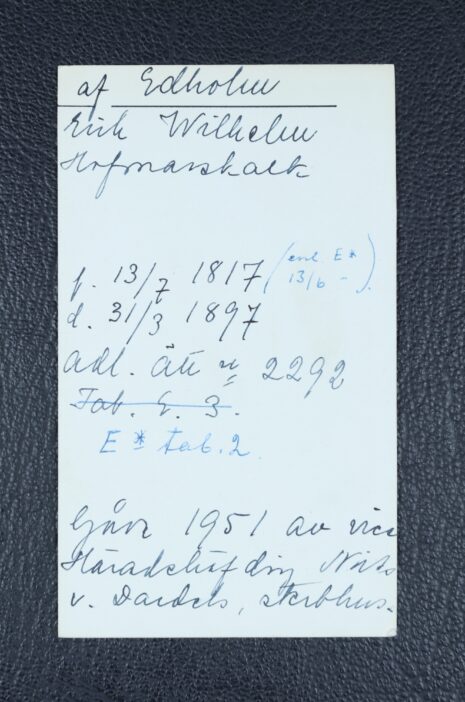 af Edholm
Erik Wilhelm
Hofmarskalk
f. 13/7 1817 (enl. E*
13/6 -).
d. 31/3 1897
adl. ätt n 2292
Tab. E. 3.
E* tab. 2.
Gåva 1951 av vice
Häradshöfding Nils
v. Dardels, sterbhus.